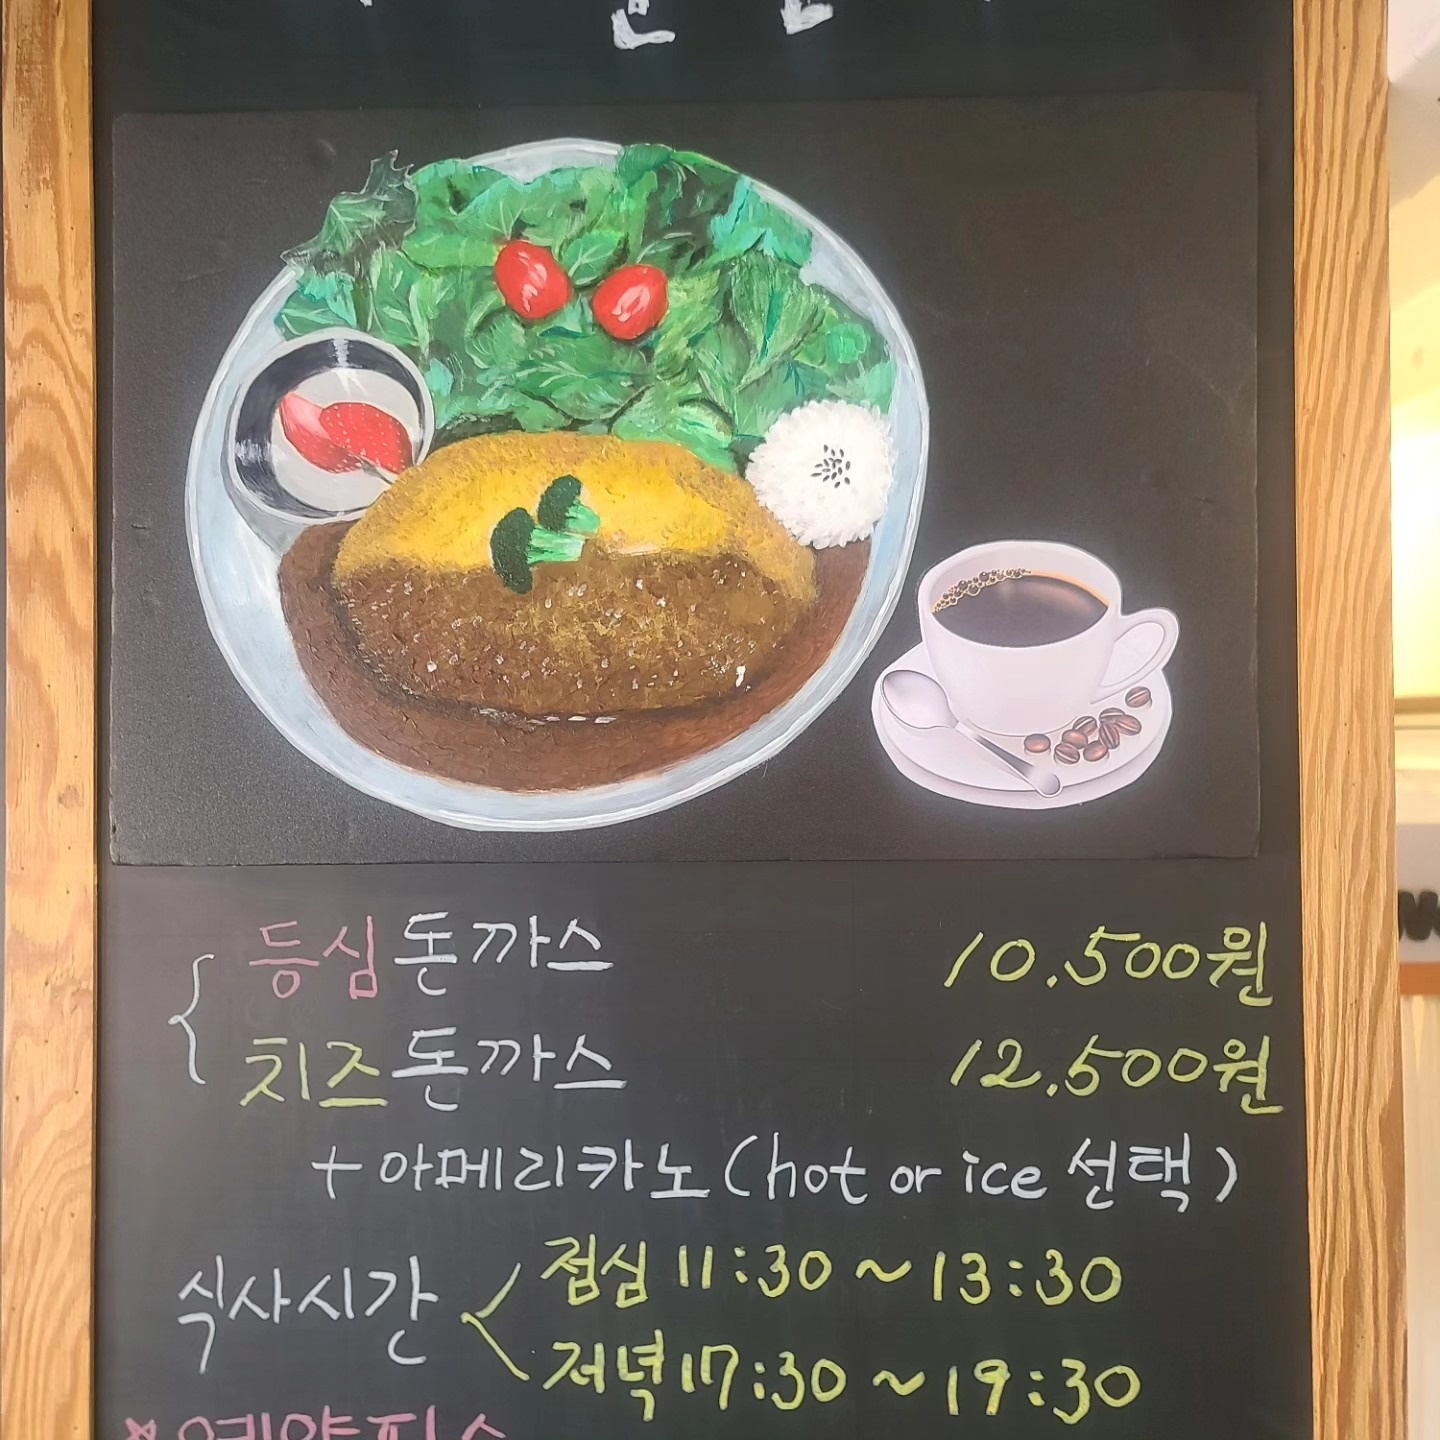 등심돈까스 10.500원
치즈돈까스 12.500원
+아메리카노(hot or ice 선택)
식사시간
점심 11:30 ~ 13:30
저녁 17:30 ~ 19:30